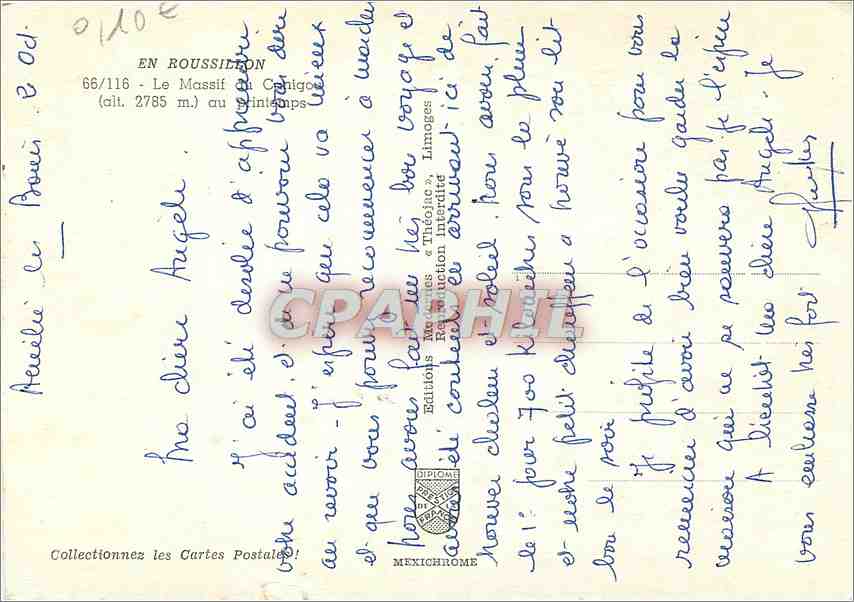 0,10€
EN ROUSSILLON
66/116 - Le Massif du Canigou
(alt. 2785 m.) au Printemps
Amélie les Bains. 2 Oct.
Ma chère Angèle.
J'ai été desolée d'apprendre
votre accident, et de ne pouvoir vous dire
au revoir - J'espère que cela va mieux
et que vous pouvez recommencer à marcher
Nous avons fait un très bon voyage et
avons été contents en arrivant ici de
trouver chaleur et soleil. Nous avons fait
le 1er jour 700 kilomètres sous la pluie
et notre petit chauffeur a trouvé son lit
bon le soir
Je profite de l'occasion pour vous
remercier d'avoir bien voulu garder la
maison qui ne se sauvera pas je l'espère
A bientôt ma chère Angèle. Je
vous embrasse très fort
Editions Modernes « Théojac », Limoges
Reproduction Interdite
CPAPHIL
DIPLOME
PRESTIGE
DE
FRANCE
Collectionnez les Cartes Postales !
MEXICHROME